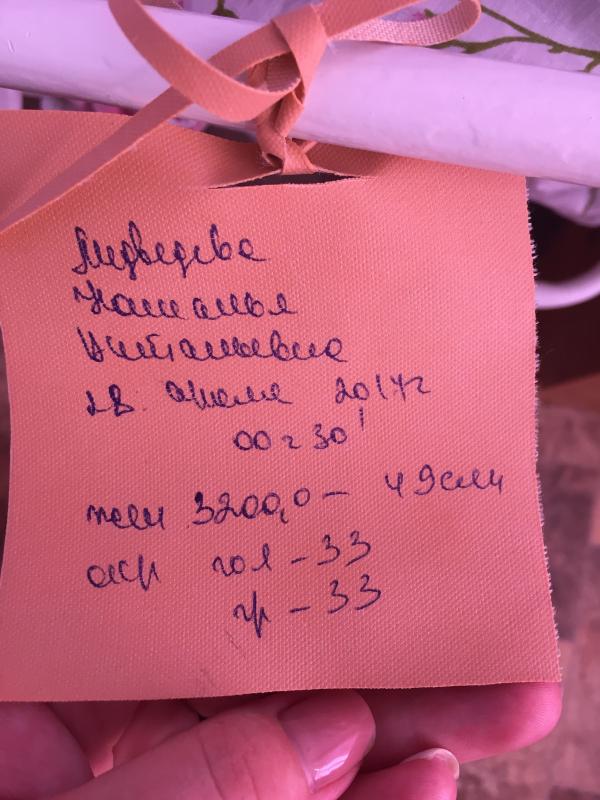 Медведева
Наталья
Витальевна
28. апреля 2017г
00 г 30'
жен 3200,0 – 49см
окр гол – 33
гр – 33